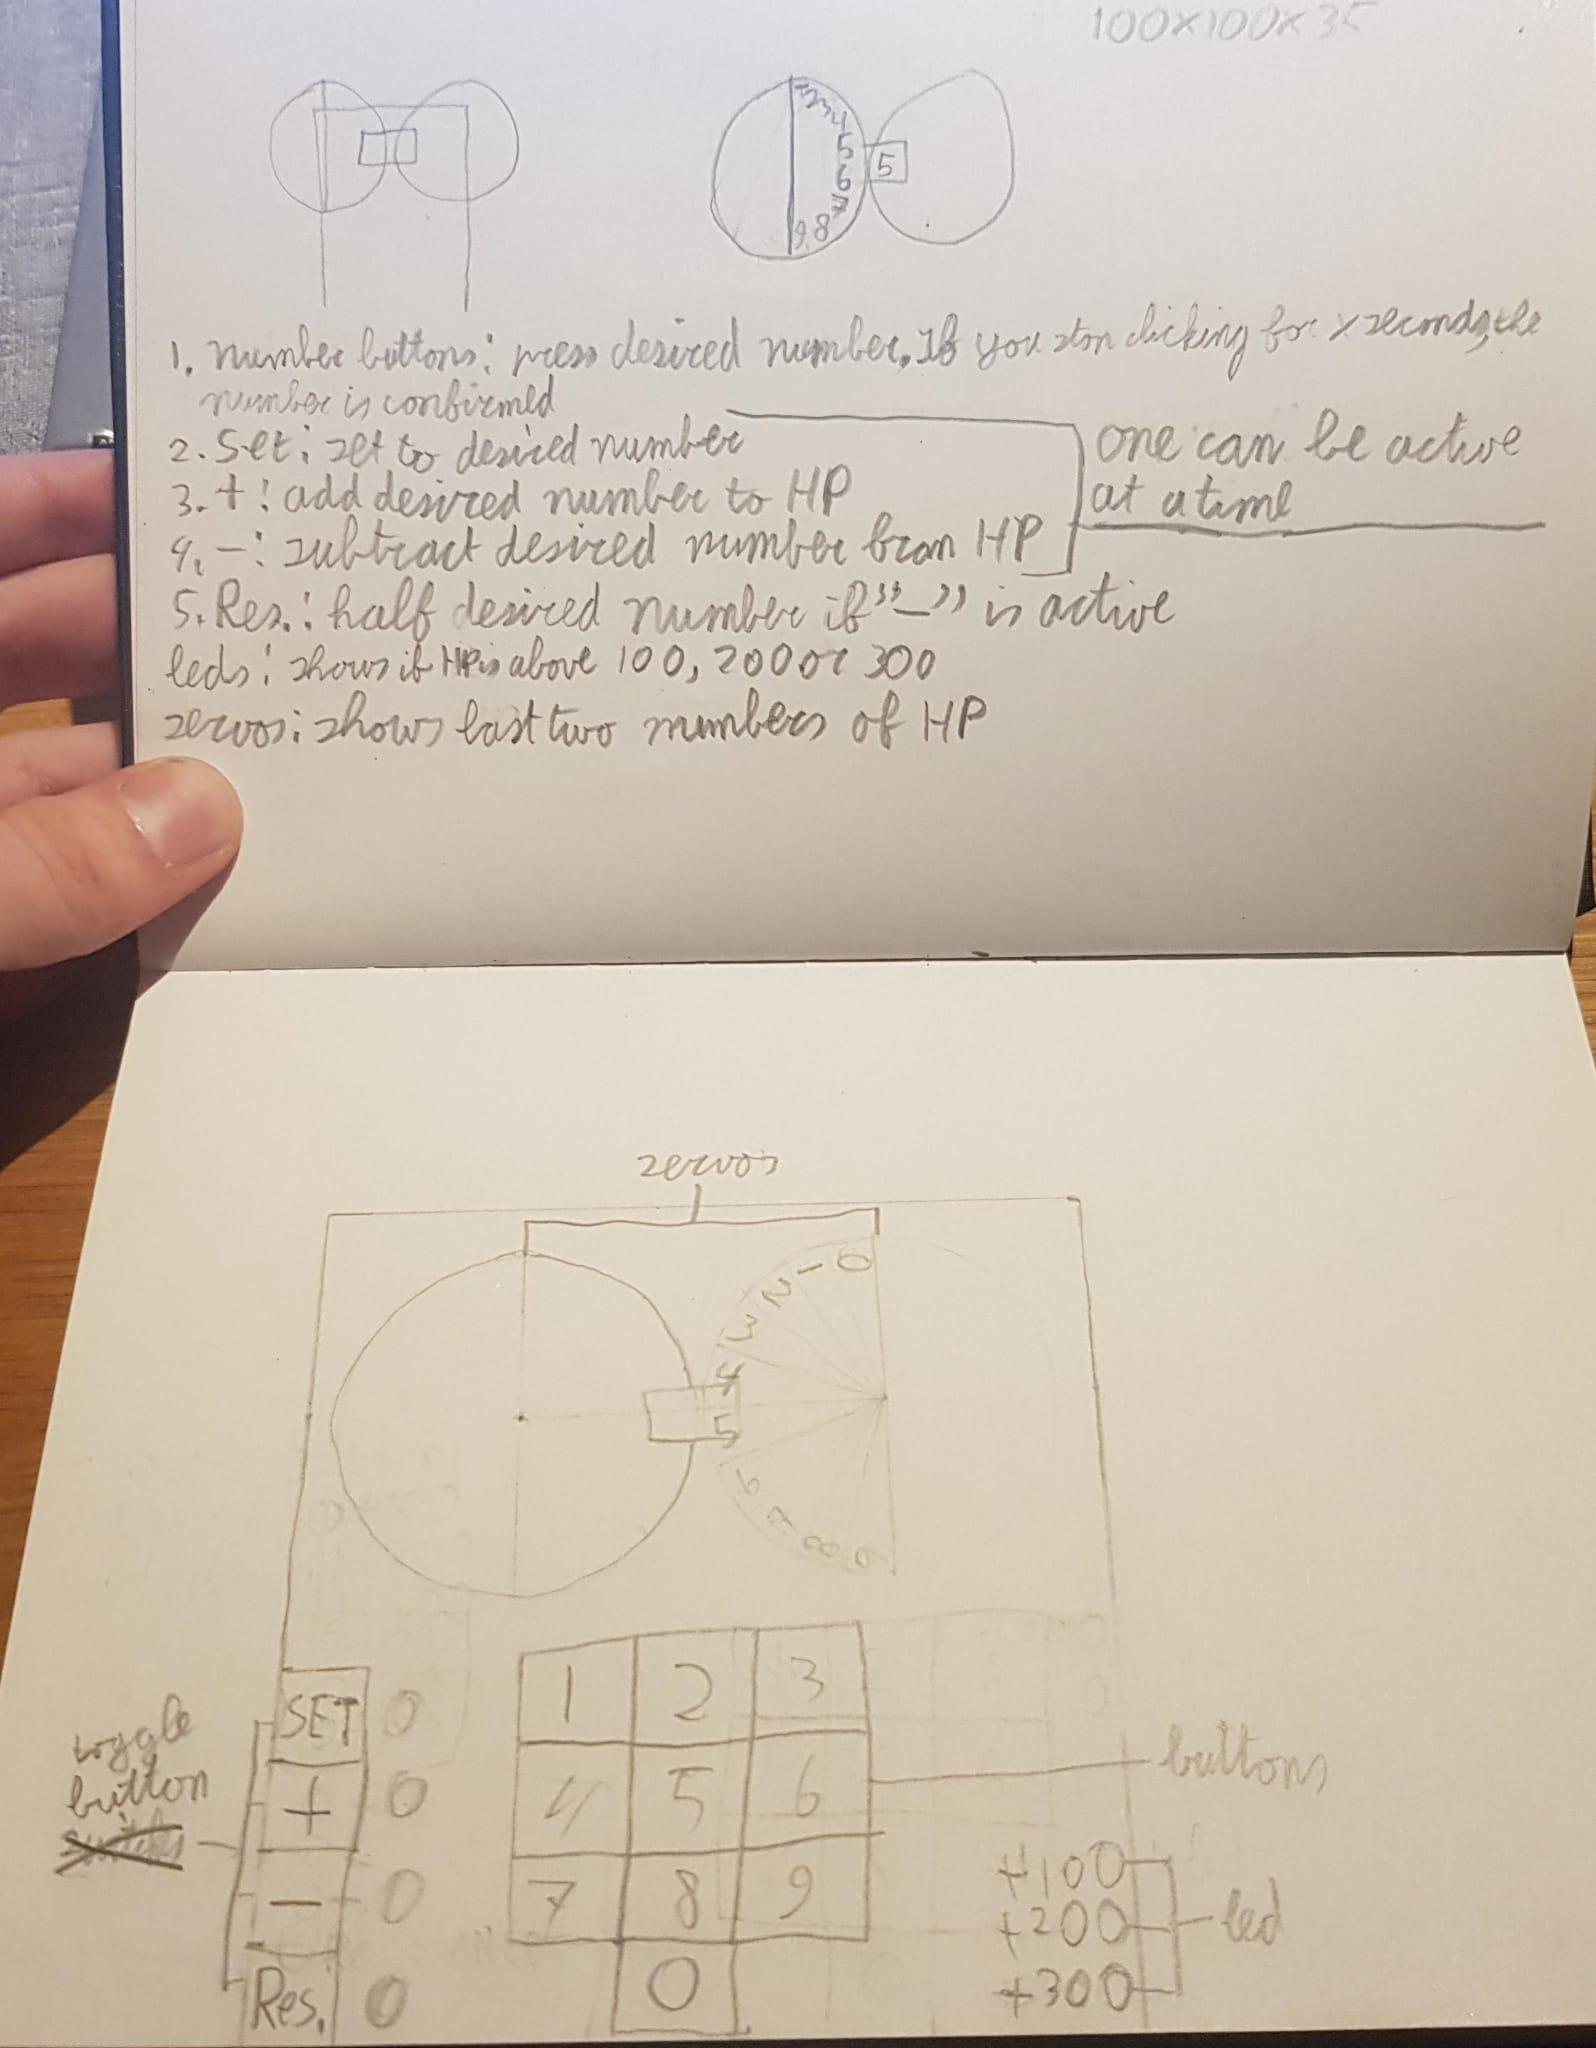 100x100x35
5 6 7 8 9
5
1. number buttons: press desired number. If you stop clicking for x seconds, the
number is confirmed
2. Set: set to desired number
3. +: add desired number to HP
4. -: subtract desired number from HP
one can be active
at a time
5. Res.: half desired number if "-" is active
leds: shows if HP is above 100, 200 or 300
servos: shows last two numbers of HP
servos
0
1
2
3
4
5
6
7
8
9
SET
1 2 3
toggle
button
+
4 5 6
buttons
-
7 8 9
+100
+200
+300
led
Res.
0